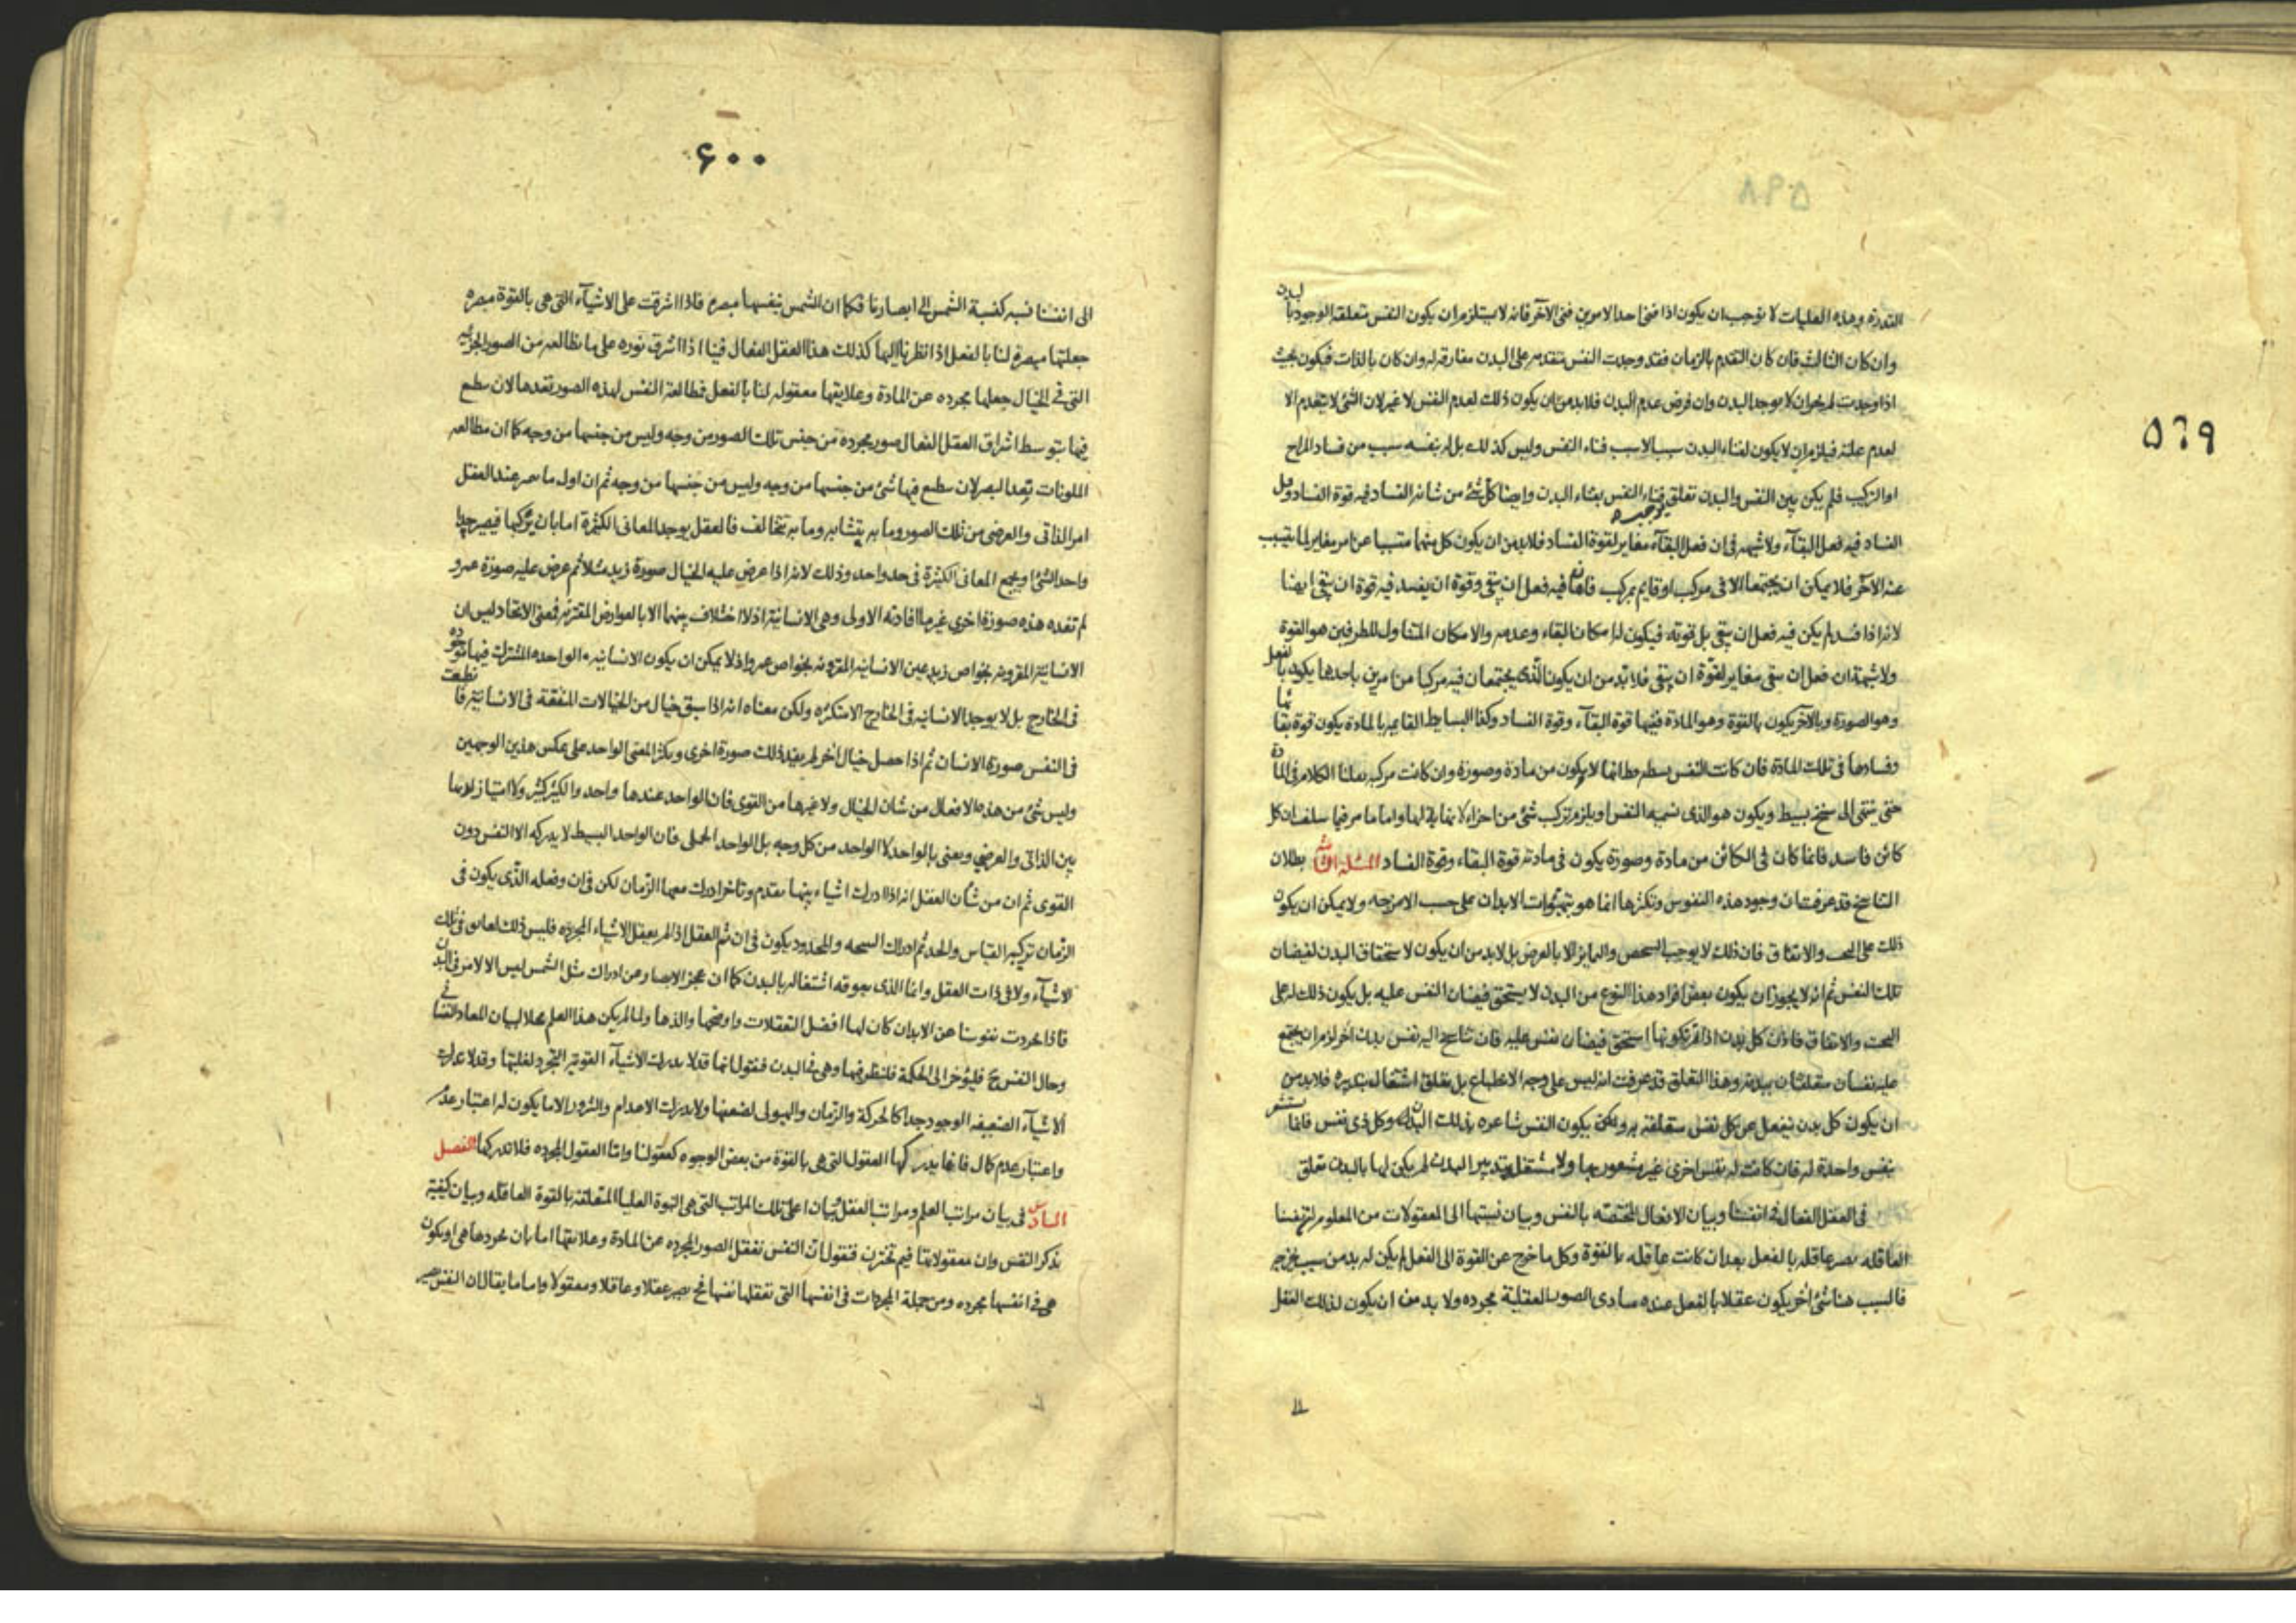 ٥٦٩
التدزه وهذه العليات لا توجب ان يكون اذا فنى احد الامرين فنى الآخر فانه لا يستلزم ان يكون النفس متعلقه الوجود بالبدن
وان كان الثالث فان كان التقدم بالزمان فقد وجدت النفس متقدمه على البدن مفارقه له وان كان بالذات فيكون بحيث
اذا وجدت لم يجز ان لا يوجد البدن وان فرض عدم البدن فلابد من ان يكون ذلك لعدم النفس لا غير لان الشئ لا يتقدم الا
لعدم علته فيلزم ان لا يكون لفناء البدن سبب الا سبب فناء النفس وليس كذلك بل له بنفسه سبب من فساد المزاج
او التركيب فلم يكن بين النفس والبدن تعلق يوجب فناء النفس بفناء البدن وايضا كل شئ من شانه الفساد فيه قوة الفساد وقبل
الفساد فيه فعل البقآء ولا شبهه فى ان فعل البقآء مغاير لقوة الفساد فلابد من ان يكون كل منهما متسببا عن امر مغاير لما يتسبب
عنه الآخر فلا يمكن ان يجتمعا الا فى مركب او قايم بمركب فما فيه فعل ان يبقى وقوة ان يفسد فيه قوة ان يبقى ايضا
لانه اذا فسد لم يكن فيه فعل ان يبقى بل قوته فيكون له امكان البقاء وعدمه والامكان المتناول للطرفين هو القوة
ولا شبهة ان فعل ان يبقى مغاير لقوة ان يبقى فلا بد من ان يكون الذى يجتمعان فيه مركبا من امرين باحدهما يكون بالفعل
وهو الصورة وبالآخر يكون بالقوة وهو المادة ففيها قوة البقآء وقوة الفساد وكذا البسايط القايمه بالمادة يكون قوة بقائها
وفسادها فى تلك المادة فان كانت النفس بسيطه مطلقا لا يكون من مادة وصورة وان كانت مركبه نقلنا الكلام فى المادة
حتى ينتهى الى سنخ بسيط ويكون هو الذى نسميه النفس او يلزم تركب شئ من اجزاء لا نهاية لها واما ما مر فيما سلف ان كل
كائن فاسد فانما كان فى الكائن من مادة وصورة يكون فى مادته قوة البقاء وقوة الفساد المسئلة الثانية بطلان
التناسخ قد عرفت ان وجود هذه النفوس وتكثرها انما هو بتهيئوات الابدان على حسب الامزجه ولا يمكن ان يكون
ذلك على البحت والاتفاق فان ذلك لا يوجب التشخص والتمايز الا بالعرض بل لابد من ان يكون لاستحقاق البدن لفيضان
تلك النفس ثم انه لا يجوز ان يكون بعض افراد هذا النوع من البدن لا يستحق فيضان النفس عليه بل يكون ذلك له على
البحت والاتفاق فاذن كل بدن اذا تم تكونها استحق فيضان نفس عليه فان تناسخ اليه نفس بدن آخر لزم ان يجتمع
عليه نفسان متعلقتان ببدنه وهذا التعلق قد عرفت انه ليس على وجه الانطباع بل تعلق اشتغال بتدبيره فلابد من
ان يكون كل بدن ينفعل عن كل نفس متعلقه به يكون النفس شاعره بذلك البدن وكل ذى نفس فانما يستشعر
بنفس واحدة له فان كانت له نفس اخرى غير مشعور بها ولا مشتغل بتدبير البدن لم يكن لها بالبدن تعلق
فى العقل الفعال فى انفسنا وبيان الافعال المختصه بالنفس وبيان نسبتها الى المعقولات من المعلوم ان نفسنا
العاقله تصير عاقله بالفعل بعد ان كانت عاقله بالقوة وكل ما خرج عن القوة الى الفعل لم يكن له بد من سبب يخرجه
فالسبب هنا شئ آخر يكون عقلا بالفعل عنده مبادى الصور العقلية مجرده ولا بد من ان يكون لذلك العقل
٤٠٠
الى انفسنا نسبه كنسبة الشمس الى ابصارنا فكما ان الشمس بنفسها مبصره فاذا اشرقت على الاشيآء التى هى بالقوة مبصره
جعلتها مبصرة لنا بالفعل اذا نظرنا اليها كذلك هذا العقل الفعال فينا اذا اشرق نوره على ما نطالعه من الصور الجزئيه
التى فى الخيال جعلها مجرده عن المادة وعلايقها معقوله لنا بالفعل فطالعة النفس لهذه الصور تعدها لان يطبع
فيها بتوسط اشراق العقل الفعال صور مجرده من جنس تلك الصور من وجه وليس من جنسها من وجه كما ان مطالعه
الملونات يعد البصر لان يطبع فيها شئ من جنسها من وجه وليس من جنسها من وجه ثم ان اول ما يميز عند العقل
امر الذاتى والعرضى من تلك الصور وما به يتشابه وما به تتخالف فالعقل يوحد المعانى الكثيرة اما بان يركبها فيصير حدا
واحد الشئ او يجمع المعانى الكثيرة فى حد واحد وذلك لانه اذا عرض عليه الخيال صورة زيد مثلا ثم عرض عليه صورة عمرو
لم تفده هذه صورة اخرى غير ما افادته الاولى وهى الانسانية اذ لا اختلاف بينهما الا بالعوارض المقترنه فمعنى الاتحاد ليس ان
الانسانية المقرونه بخواص زيد عين الانسانيه المقرونه بخواص عمرو اذ لا يمكن ان يكون الانسانيه الواحده المشترك فيها موجوده
فى الخارج بل لا يوجد الانسانيه فى الخارج الا متكثره ولكن معناه انه اذا سبق خيال من الخيالات المتفقه فى الانسانية فانطبعت
فى النفس صورة الانسان ثم اذا حصل خيال آخر لم يفيد ذلك صورة اخرى ويكثر المعنى الواحد على عكس هذين الوجهين
وليس شئ من هذه الافعال من شان الخيال ولا غيرها من القوى فان الواحد عندها واحد والكثير كثير ولا امتياز لها
بين الذاتى والعرضى ويعنى بالواحد لا الواحد من كل وجه بل الواحد الحملى فان الواحد البسيط لا يدركه الا النفس دون
القوى ثم ان من شأن العقل انه اذا ادرك اشياء بينها تقدم وتاخر ادرك معها الزمان لكن فى ان وفعله الذى يكون فى
الزمان تركيبه القياس والحد ثم ادراك النتيجه والمحدود يكون فى ان ثم العقل اذا لم يعقل الاشياء المجرده فليس ذلك لعائق فى تلك
الاشيآء ولا فى ذات العقل وانما الذى يعوقه اشتغاله بالبدن كما ان عجز الابصار عن ادراك مثل الشمس ليس الا لامر فى البدن
فاذا تجردت نفوسنا عن الابدان كان لها افضل التعقلات واوضحها والذها ولما لم يكن هذا العلم محلا لبيان المعاد النفسانى
وحال النفس ح فليؤخر الى الحكمة فلننظر فيها وهى فى البدن فنقول انها قد لا يدرك الاشيآء القوية التجرد لغلبتها وقد لا يدرك
الاشيآء الضعيفه الوجود جدا كالحركة والزمان والهيولى لضعفها ولا يدرك الاعدام والشرور الا ما يكون له اعتبار عدم
واعتبار عدم كمال فانما يدركها العقول التى هى بالقوة من بعض الوجوه كعقولنا واما العقول المجرده فلا تدركها الفصل
السادس فى بيان مراتب العلم ومراتب العقل وبيان اعلى تلك المراتب التى هى النبوة العليا المتعلقة بالقوة العاقله وبيان كيفية
تذكر النفس وان معقولاتنا فيم تختزن فنقول ان النفس تعقل الصور المجرده عن المادة وعلايقها اما بان تجردها هى او يكون
هى فى انفسها مجرده ومن جملة المجردات فى انفسها التى تعقلها نفسها فح يصير عقلا وعاقلا ومعقولا واما ما يقال ان النفس